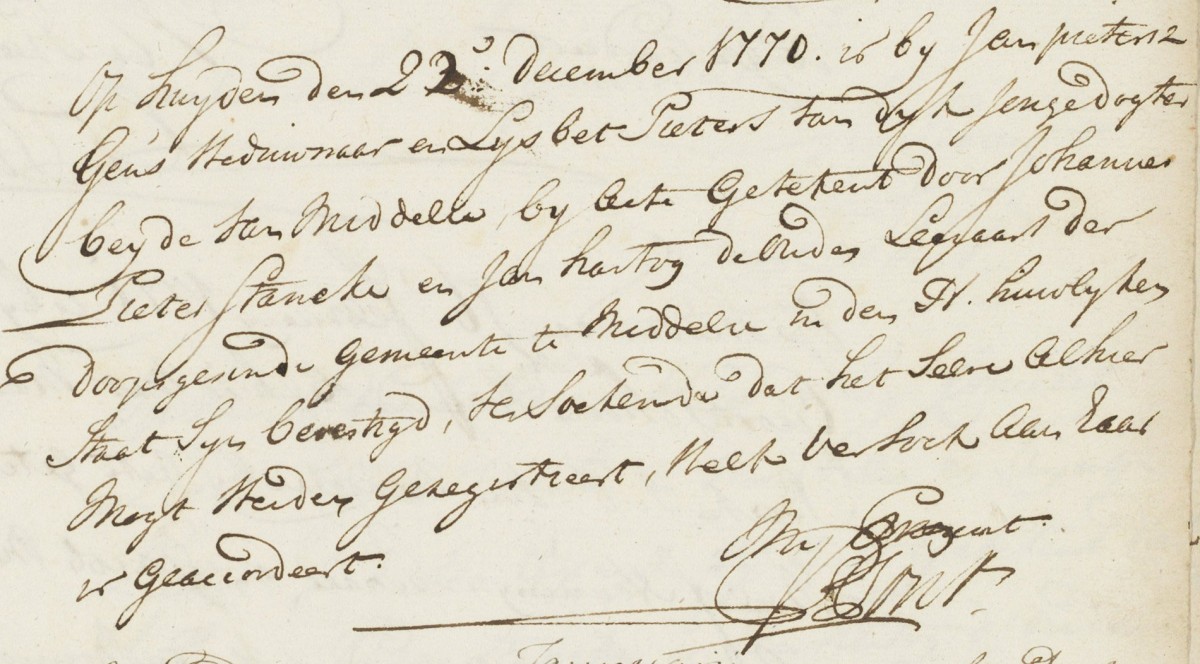 Op huyden den 22e. December 1770. is by Jan pietersz
Geus Weduwnaar en Lysbet Pieters van dyk Jongedogter
beyde van Middelie, by Acte Getekent door Johannes
Pieter Stancke en Jan hartog de Oudes Leeraars der
doopsgesinde gemeente te Middelie in den H. huwlyken
Staat Syn bevestigd, versoekende dat het Selve Alhier
Mogt Werden Geregistreert, Welk Versoek Aan haar
is Geaccordeert.
My Present